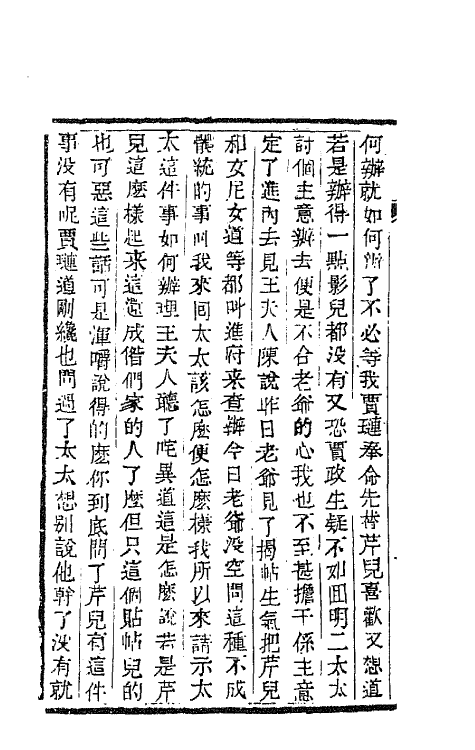 何辦就如何辦了不必等我賈璉奉命先替芹兒喜歡又想道
若是辦得一點影兒都没有又恐賈政生疑不如囬明二太太
討個主意辦去便是不合老爺的心我也不至甚擔干係主意
定了進内去見王夫人陳說昨日老爺見了揭帖生氣把芹兒
和女尼女道等都叫進府来查辦今日老爺没空問這種不成
體統的事叫我來囬太太該怎麽便怎麽樣我所以來請示太
太這件事如何辦理王夫人聽了咤異道這是怎麽說若是芹
兒這麽樣起来這還成偺們家的人了麽但只這個貼帖兒的
也可惡這些話可是渾嚼說得的麽你到底問了芹兒有這件
事没有呢賈璉道剛纔也問過了太太想別說他幹了没有就